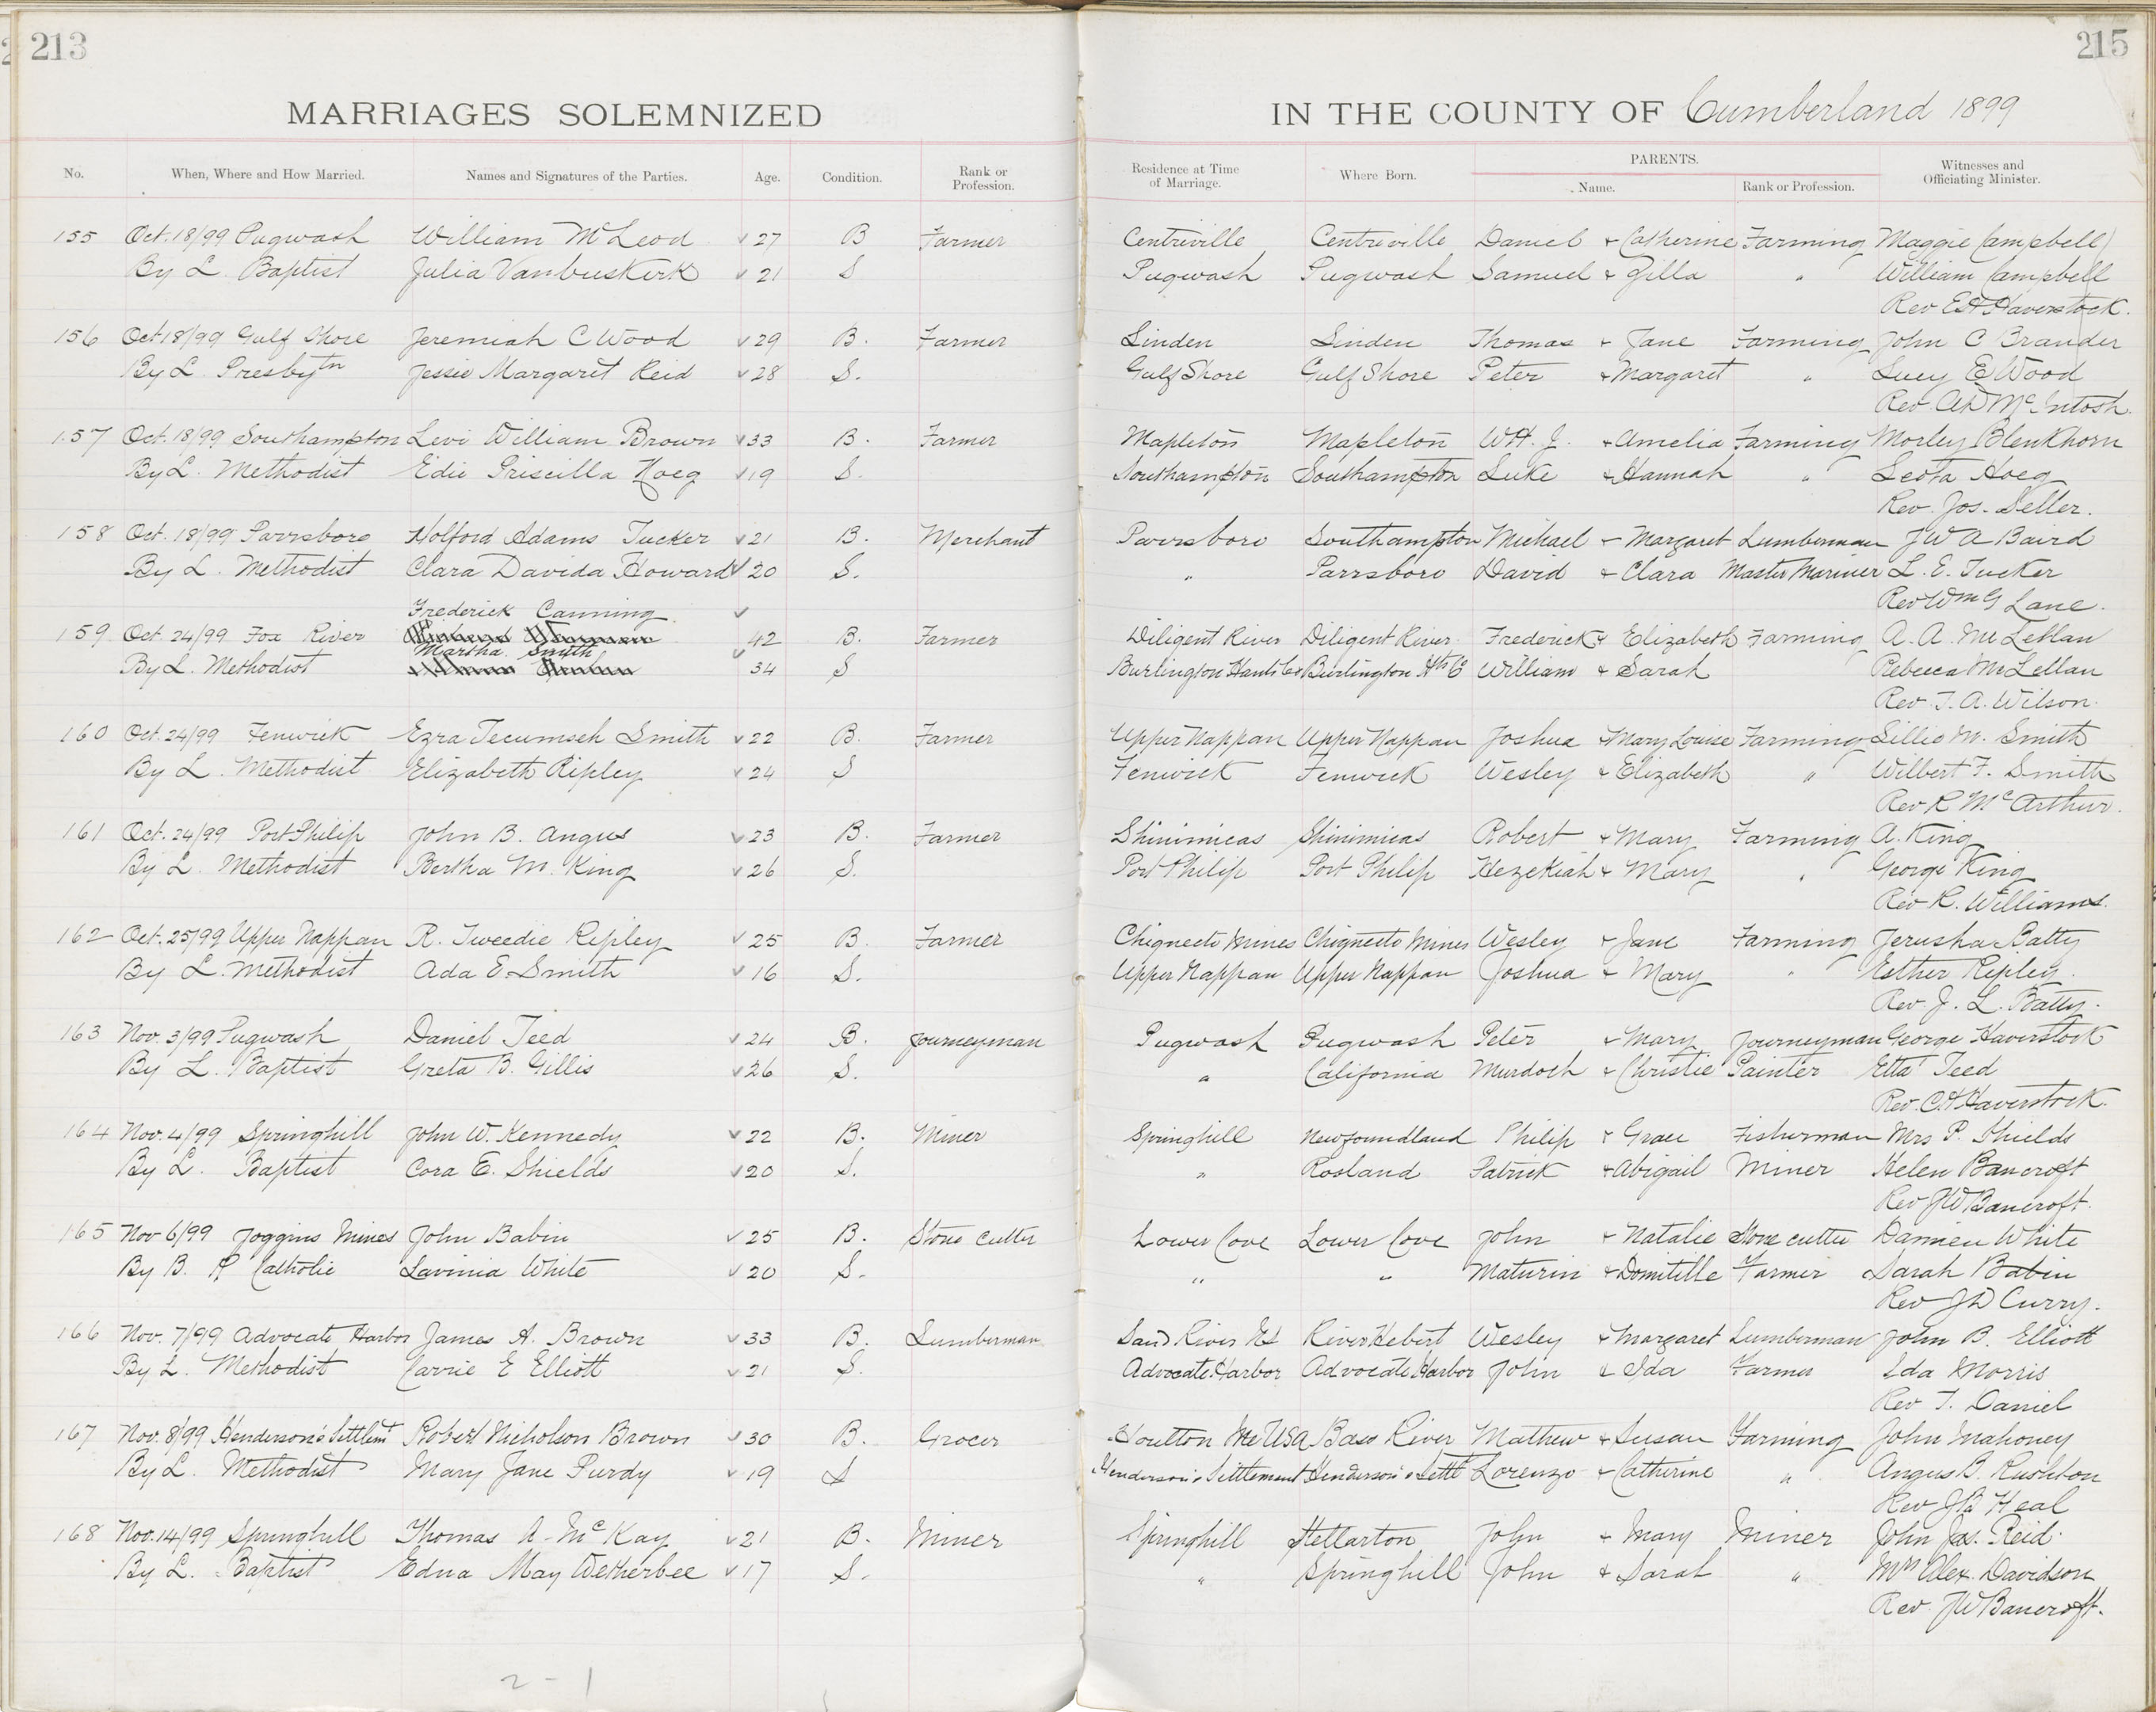 213
215
MARRIAGES SOLEMNIZED IN THE COUNTY OF Cumberland 1899
No. When, Where and How Married. Names and Signatures of the Parties. Age. Condition. Rank or Profession. Residence at Time of Marriage. Where Born. PARENTS. Name. Rank or Profession. Witnesses and Officiating Minister.
155 Oct. 18/99 Pugwash William McLeod 27 B Farmer Centreville Centreville Daniel & Catherine Farming Maggie Campbell
By L. Baptist Julia Vanbuskirk 21 S Pugwash Pugwash Samuel & Zilla " William Campbell
Rev E H Haverstock.
156 Oct 18/99 Gulf Shore Jeremiah C Wood 29 B. Farmer Linden Linden Thomas & Jane Farming John C Brander
By L. Presbytn Jessie Margaret Reid 28 S. Gulf Shore Gulf Shore Peter & Margaret " Lucy E Wood
Rev. AD McIntosh.
157 Oct. 18/99 Southampton Levi William Brown 33 B. Farmer Mapleton Mapleton WH. J. & Amelia Farming Morley Blenkhorn
By L. Methodist Edie Priscilla Hoeg 19 S. Southampton Southampton Luke & Hannah " Leota Hoeg
Rev. Jos. Seller.
158 Oct. 18/99 Parrsboro Holford Adams Tucker 21 B. Merchant Parrsboro Southampton Michael & Margaret Lumberman J W A Baird
By L. Methodist Clara Davida Howard 20 S. " Parrsboro David & Clara Master Mariner L. E. Tucker
Rev Wm G Lane.
Frederick Canning
159 Oct. 24/99 Fox River 42 B. Farmer Diligent River Diligent River Frederick & Elizabeth Farming A. A. McLellan
Martha Smith
By L. Methodist 34 S Burlington Hants Co Burlington Hts Co William & Sarah Rebecca McLellan
Rev. T. A. Wilson.
160 Oct. 24/99 Fenwick Ezra Tecumseh Smith 22 B. Farmer Upper Nappan Upper Nappan Joshua & Mary Louise Farming Lillie M. Smith
By L. Methodist Elizabeth Ripley 24 S Fenwick Fenwick Wesley & Elizabeth " Wilbert F. Smith
Rev R McArthur.
161 Oct. 24/99 Port Philip John B. Angus 23 B. Farmer Shinimicas Shinimicas Robert & Mary Farming A. King
By L. Methodist Bertha M. King 26 S. Port Philip Port Philip Hezekiah & Mary " George King
Rev R. Williams.
162 Oct. 25/99 Upper Nappan R. Tweedie Ripley 25 B. Farmer Chignecto Mines Chignecto Mines Wesley & Jane Farming Jerusha Batty
By L. Methodist Ada E Smith 16 S. Upper Nappan Upper Nappan Joshua & Mary " Esther Ripley.
Rev. J. L. Batty.
163 Nov. 3/99 Pugwash Daniel Teed 24 B. Journeyman Pugwash Pugwash Peter & Mary Journeyman George Haverstock
By L. Baptist Greta B. Gillis 26 S. " California Murdoch & Christie Painter Etta Teed
Rev. C. H Haverstock.
164 Nov. 4/99 Springhill John W. Kennedy 22 B. Miner Springhill Newfoundland Philip & Grace Fisherman Mrs P. Shields
By L. Baptist Cora E. Shields 20 S. " Rosland Patrick & Abigail Miner Helen Bancroft
Rev J W Bancroft.
165 Nov 6/99 Joggins Mines John Babin 25 B. Stone Cutter Lower Cove Lower Cove John & Natalie Stone cutter Damien White
By B. R Catholic Lavinia White 20 S. " " Maturin & Domitille Farmer Sarah Babin
Rev J D Curry.
166 Nov. 7/99 Advocate Harbor James A. Brown 33 B. Lumberman Sand River NS River Hebert Wesley & Margaret Lumberman John B. Elliott
By L. Methodist Carrie E Elliott 21 S. Advocate Harbor Advocate Harbor John & Ida Farmer Ida Morris
Rev T. Daniel
167 Nov. 8/99 Henderson's Settlemt Robert Nicholson Brown 30 B. Grocer Houlton Me USA Bass River Mathew & Susan Farming John Mahoney
By L. Methodist Mary Jane Purdy 19 S Henderson's Settlement Henderson's Settlt Lorenzo & Catherine " Angus B. Rushton
Rev Heal
168 Nov. 14/99 Springhill Thomas A. McKay 21 B. Miner Springhill Stellarton John & Mary Miner John Jas. Reid.
By L. Baptist Edna May Wetherbee 17 S. " Springhill John & Sarah " Mrs Alex. Davidson
Rev J W Bancroft.
2 - 1